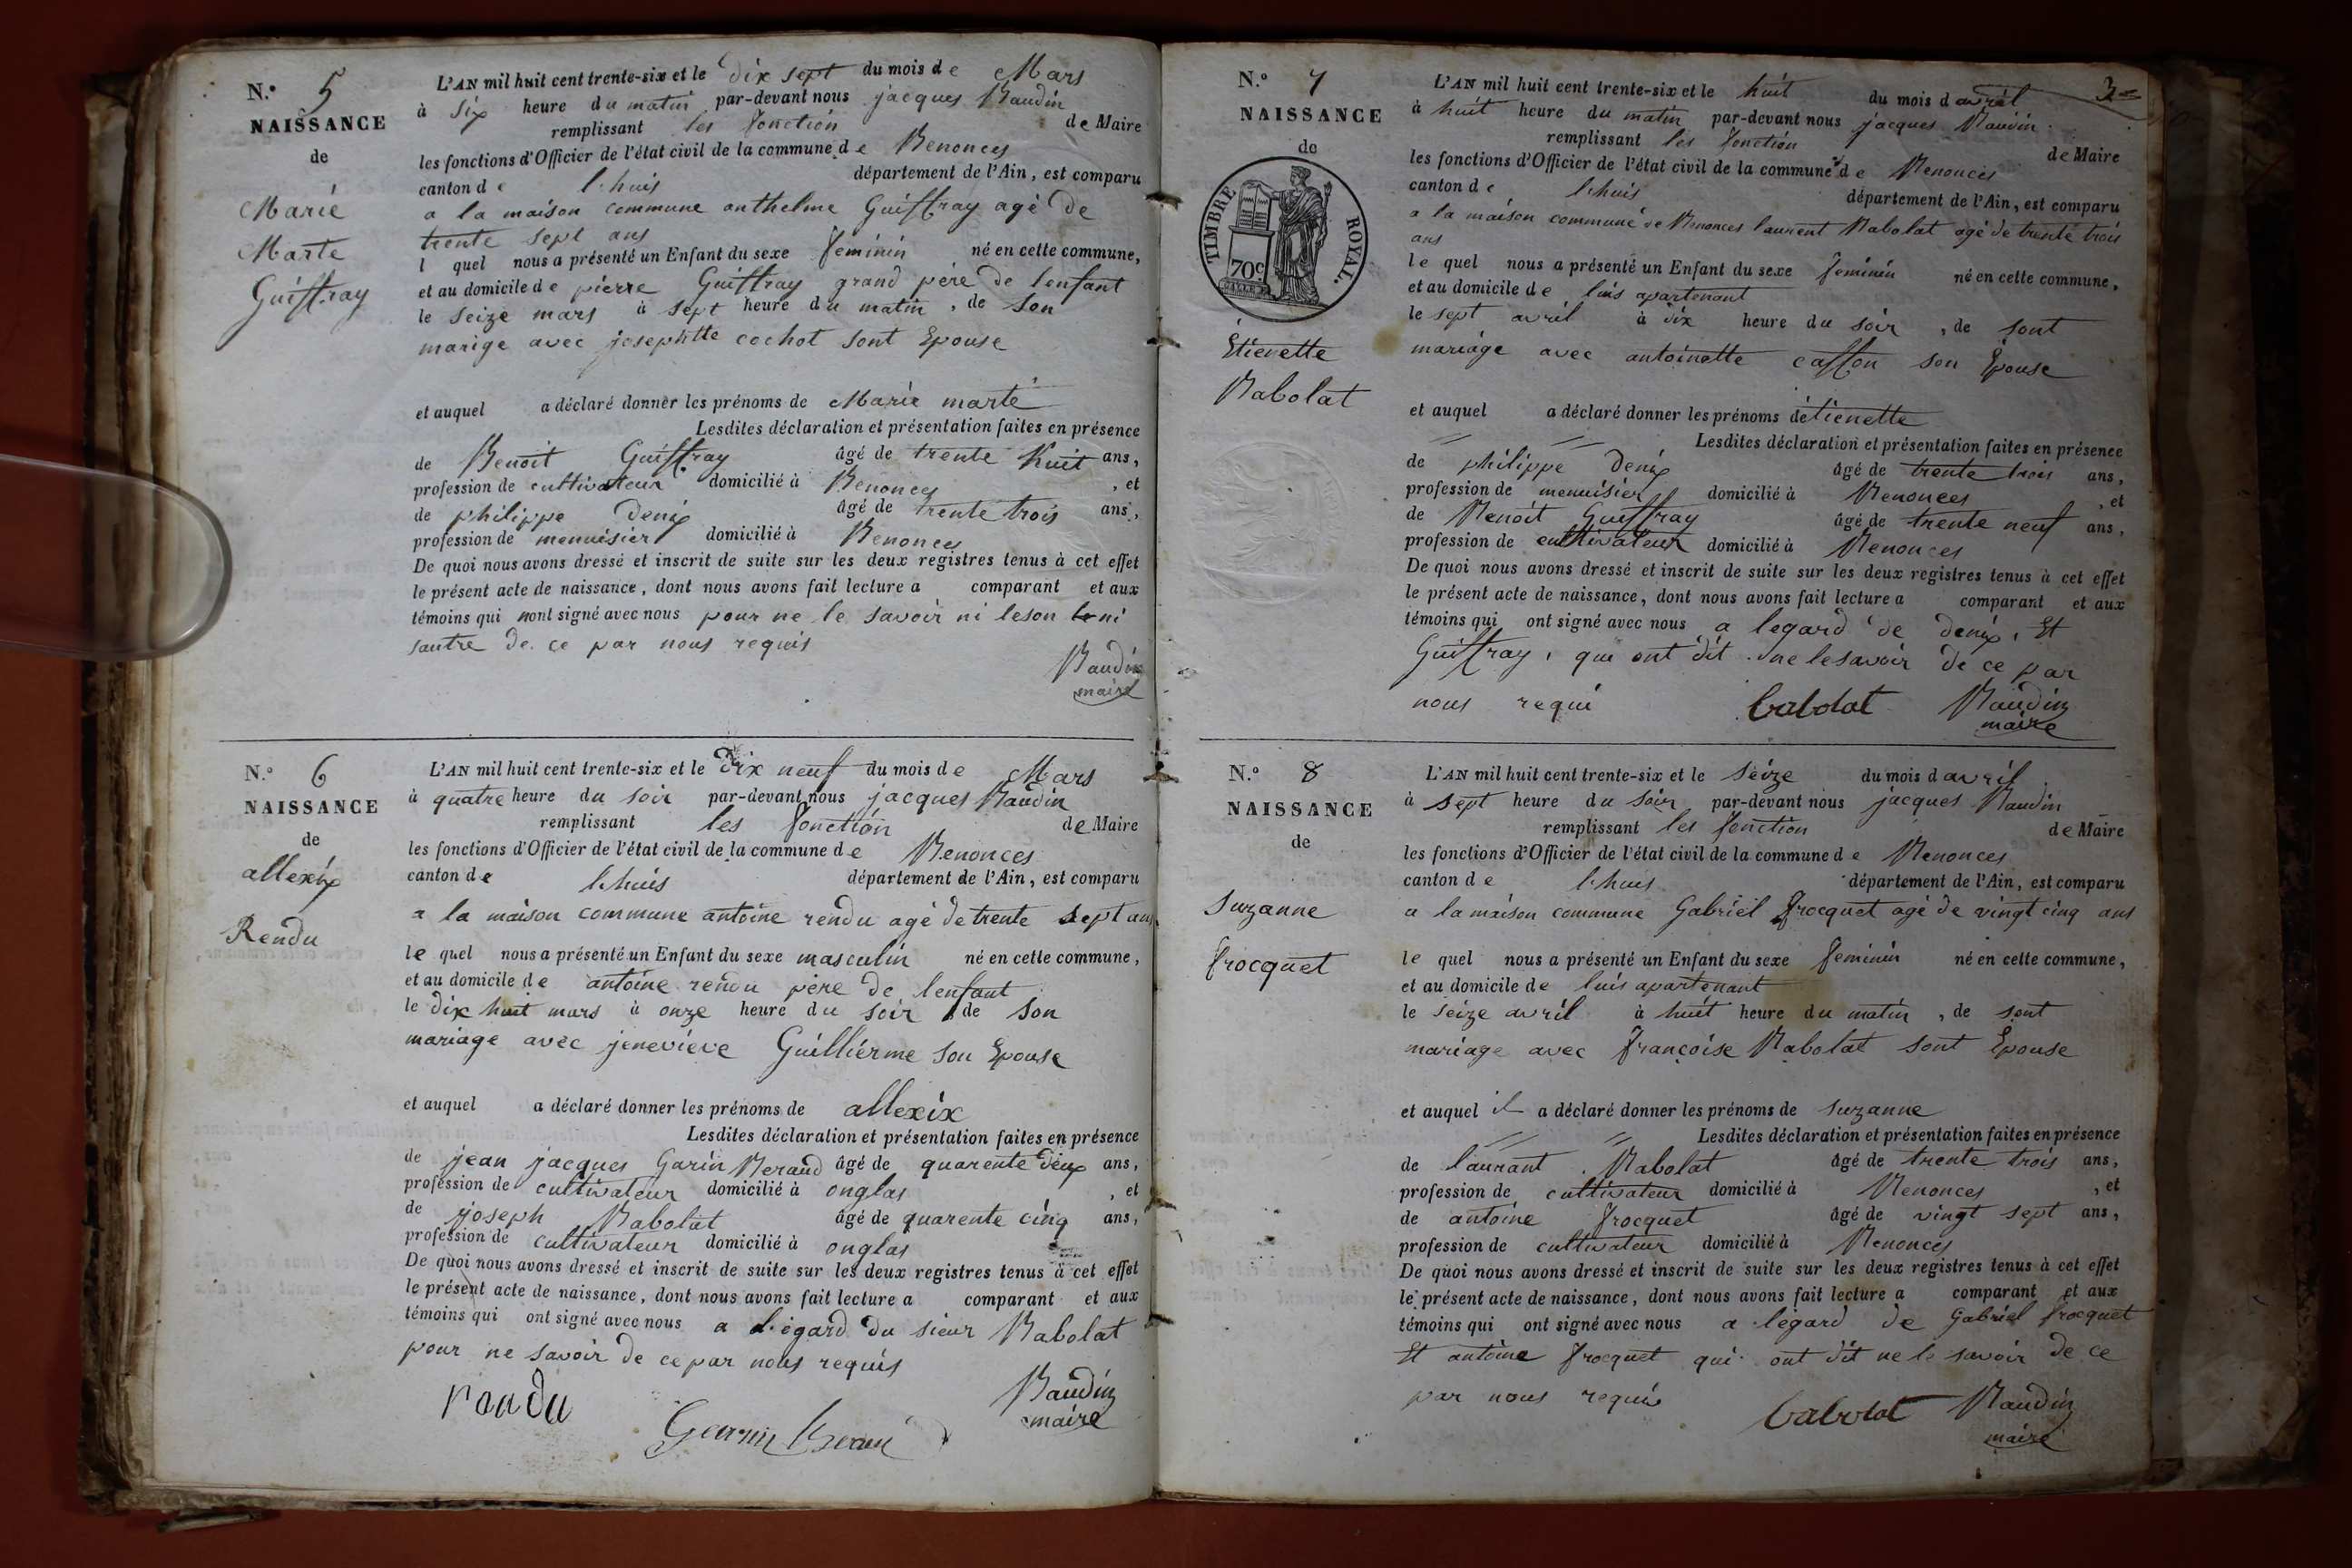 N.° 5
NAISSANCE
de
Marie
Marte
Guiffray
L'AN mil huit cent trente-six et le dix sept du mois de Mars
à six heure du matin par-devant nous jacques Baudin
remplissant les fonction de Maire
les fonctions d'Officier de l'état civil de la commune de Benonces
canton de lhuis département de l'Ain, est comparu
a la maison commune anthelme Guiffray agé de
trente sept ans
l quel nous a présenté un Enfant du sexe feminin né en cette commune,
et au domicile de pierre Guiffray grand pére de lenfant
le seize mars à sept heure du matin, de son
marige avec josephtte cochot sont Epouse
et auquel a déclaré donner les prénoms de Marie marte
Lesdites déclaration et présentation faites en présence
de Benoit Guiffray âgé de trente huit ans,
profession de cultivateur domicilié à Benonces, et
de philippe denix âgé de trente trois ans,
profession de menuisier domicilié à Benonces
De quoi nous avons dressé et inscrit de suite sur les deux registres tenus à cet effet
le présent acte de naissance, dont nous avons fait lecture a comparant et aux
témoins qui nont signé avec nous pour ne le savoir ni leson ni
sautre de ce par nous requis
Baudin
maire
N.° 6
NAISSANCE
de
allexix
Rendu
L'AN mil huit cent trente-six et le dix neuf du mois de Mars
à quatre heure du soir par-devant nous jacques Baudin
remplissant les fonction de Maire
les fonctions d'Officier de l'état civil de la commune de Benonces
canton de lhuis département de l'Ain, est comparu
a la maison commune antoine rendu agé de trente sept ans
le quel nous a présenté un Enfant du sexe masculin né en cette commune,
et au domicile de antoine rendu pére de lenfant
le dix huit mars à onze heure du soir, de son
mariage avec jenevieve Guillierme son Epouse
et auquel a déclaré donner les prénoms de allexix
Lesdites déclaration et présentation faites en présence
de jean jacques Garin Beraud âgé de quarente deux ans,
profession de cultivateur domicilié à onglas, et
de joseph Babolat âgé de quarente cinq ans,
profession de cultivateur domicilié à onglas
De quoi nous avons dressé et inscrit de suite sur les deux registres tenus à cet effet
le présent acte de naissance, dont nous avons fait lecture a comparant et aux
témoins qui ont signé avec nous a l'egard du sieur Babolat
pour ne savoir de ce par nous requis
Baudin
maire
N.° 7
NAISSANCE
de
TIMBRE ROYAL.
70c
Etienette
Babolat
3
L'AN mil huit cent trente-six et le huit du mois d avril
à huit heure du matin par-devant nous jacques Baudin
remplissant les fonction de Maire
les fonctions d'Officier de l'état civil de la commune de Benonces
canton de lhuis département de l'Ain, est comparu
a la maison commune de Benonces laurent Babolat agé de trente trois
ans
le quel nous a présenté un Enfant du sexe feminin né en cette commune,
et au domicile de luis apartenant
le sept avril à dix heure du soir, de sont
mariage avec antoinette caffon son Epouse
et auquel a déclaré donner les prénoms détienette
Lesdites déclaration et présentation faites en présence
de philippe denix âgé de trente trois ans,
profession de menuisier domicilié à Benonces, et
de Benoit Guiffray âgé de trente neuf ans,
profession de cultivateur domicilié à Benonces
De quoi nous avons dressé et inscrit de suite sur les deux registres tenus à cet effet
le présent acte de naissance, dont nous avons fait lecture a comparant et aux
témoins qui ont signé avec nous a legard de denix, Et
Guiffray, que ont dit ne lesavoir de ce par
nous requi babolat Baudin
maire
N.° 8
NAISSANCE
de
Suzanne
frocquet
L'AN mil huit cent trente-six et le seize du mois d avril
à sept heure du soir par-devant nous jacques Baudin
remplissant les fonction de Maire
les fonctions d'Officier de l'état civil de la commune de Benonces
canton de lhuis département de l'Ain, est comparu
a la maison commune Gabriel frocquet agé de vingt cinq ans
le quel nous a présenté un Enfant du sexe feminin né en cette commune,
et au domicile de luis apartenant
le seize avril à huit heure du matin, de sont
mariage avec françoise Babolat sont Epouse
et auquel il a déclaré donner les prénoms de suzanne
Lesdites déclaration et présentation faites en présence
de laurant Babolat âgé de trente trois ans,
profession de cultivateur domicilié à Benonces, et
de antoine frocquet âgé de vingt sept ans,
profession de cultivateur domicilié à Benonces
De quoi nous avons dressé et inscrit de suite sur les deux registres tenus à cet effet
le présent acte de naissance, dont nous avons fait lecture a comparant et aux
témoins qui ont signé avec nous a legard de Gabriel frocquet
Et antoine frocquet qui ont dit ne le savoir de ce
par nous requis babolat Baudin
maire